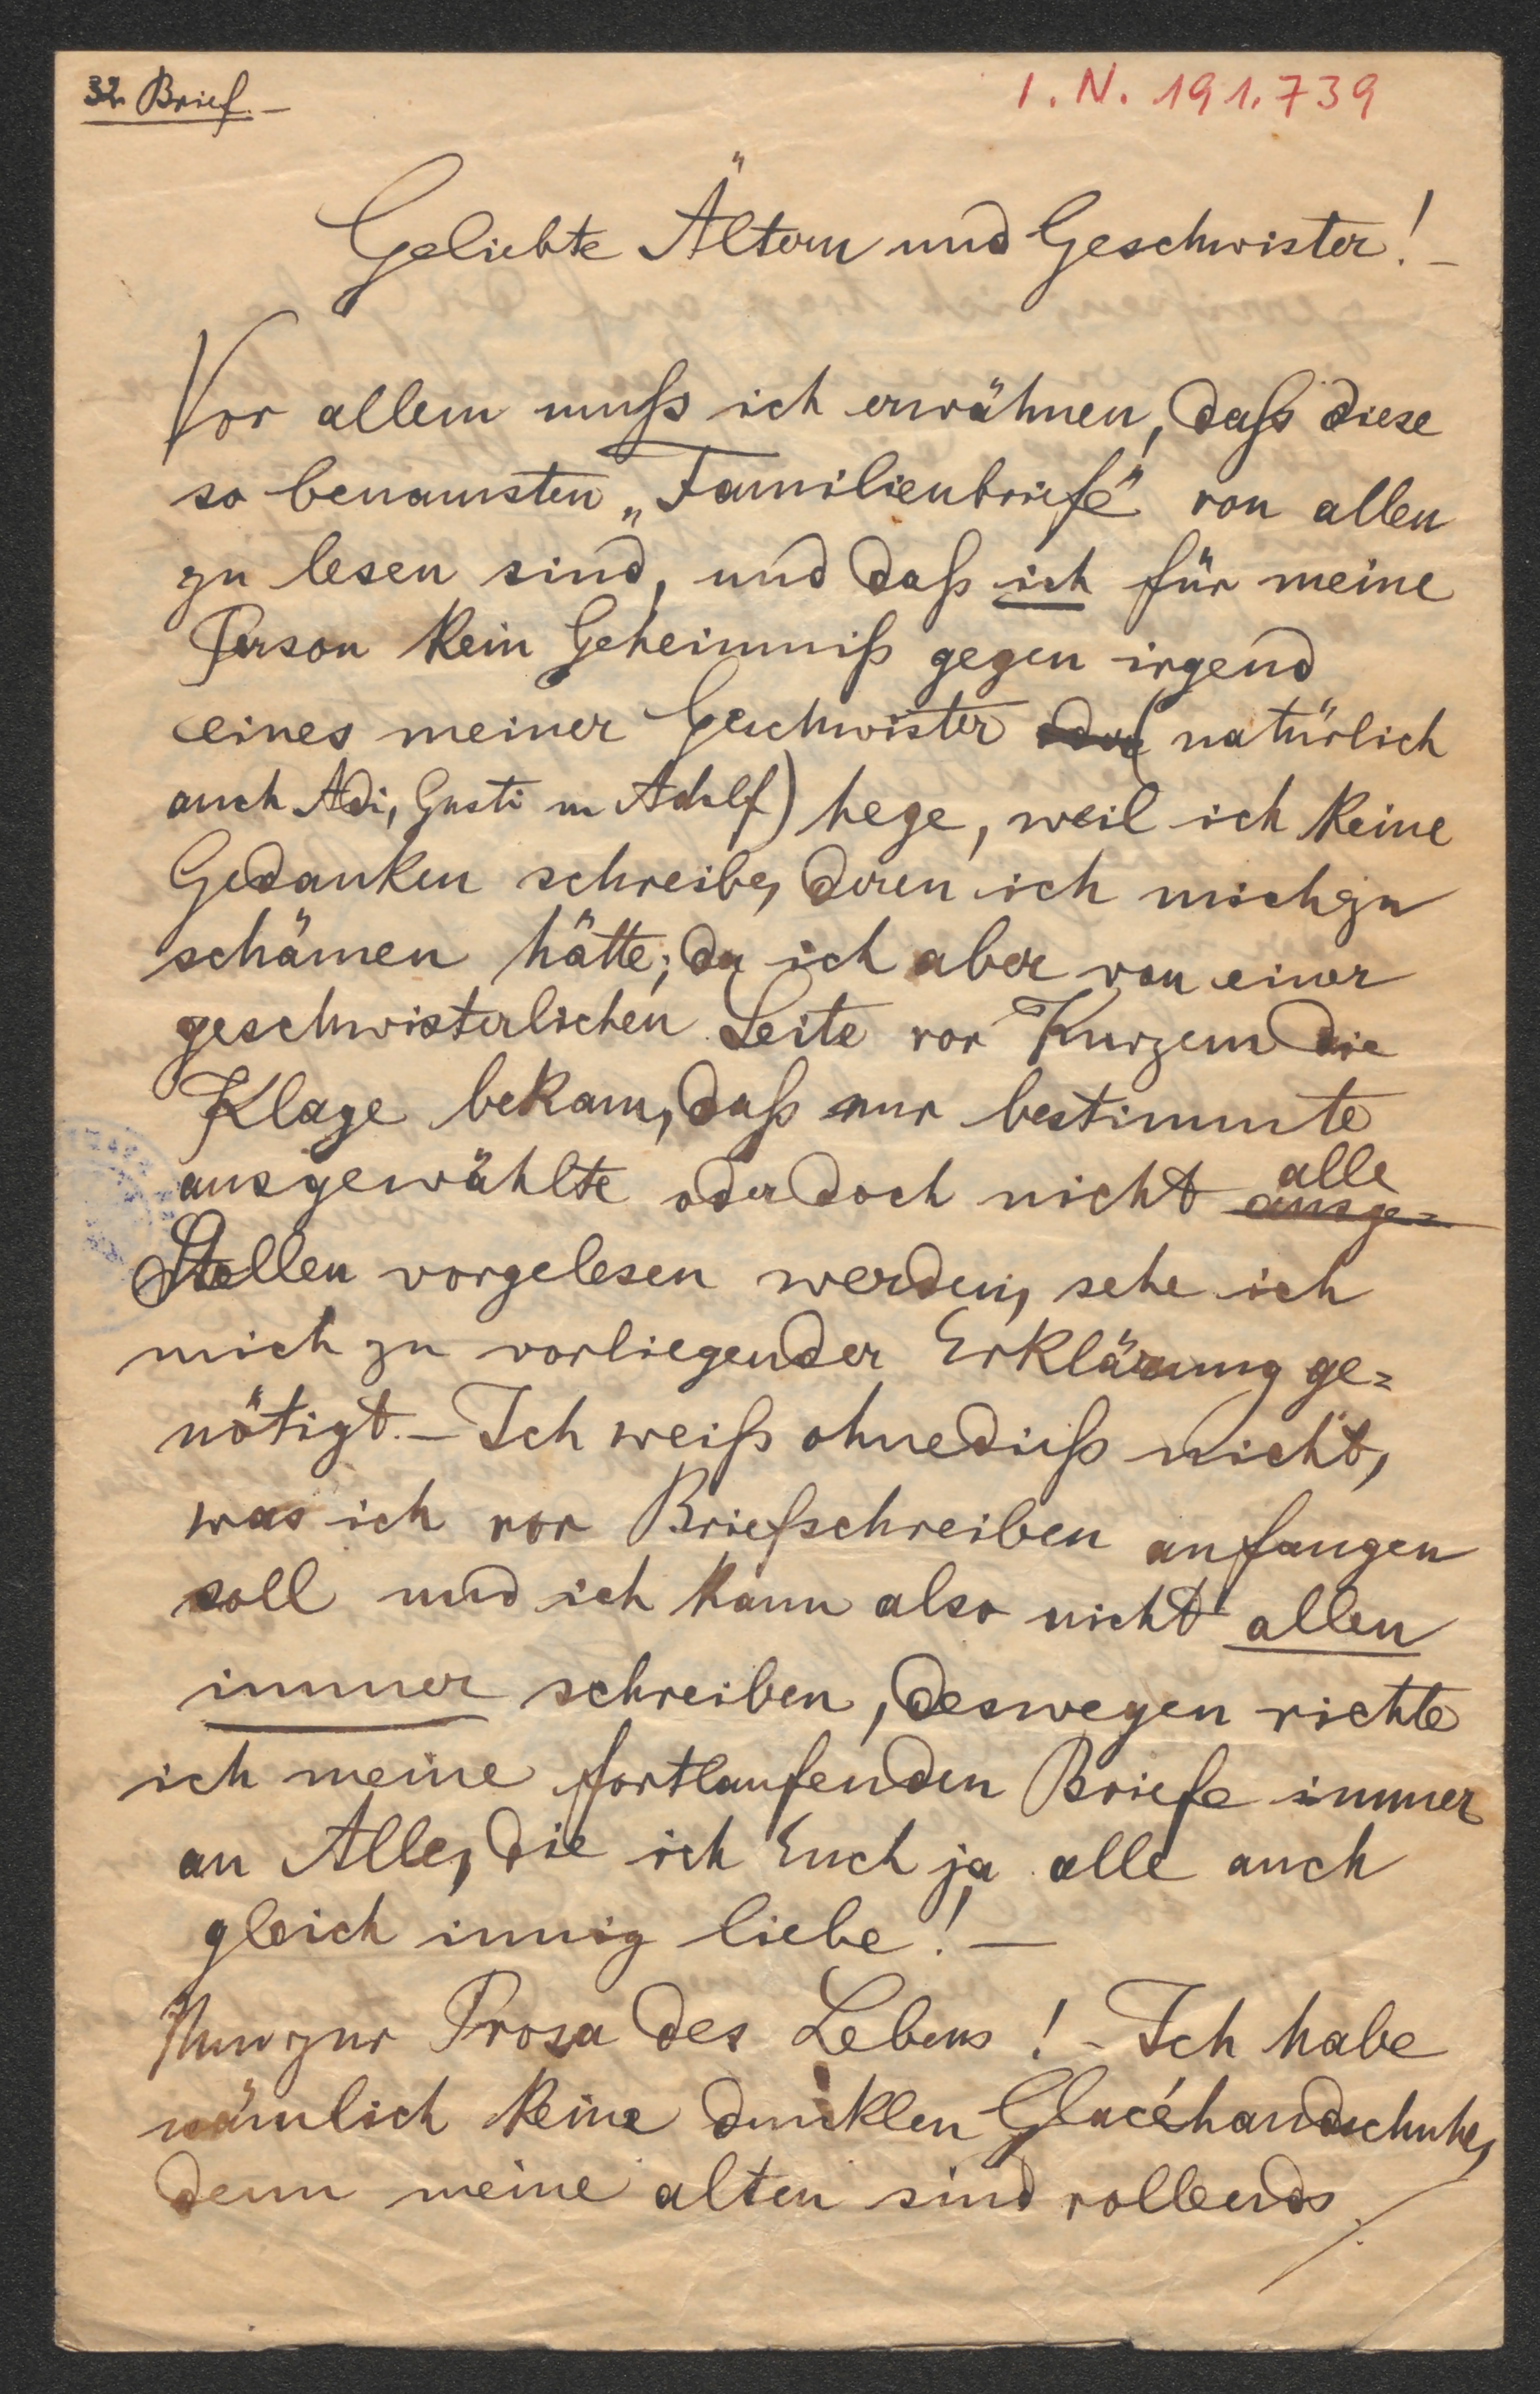 32. Brief. –
I. N. 191.739
Geliebte Ältern und Geschwister! –
Vor allem muß ich erwähnen, daß diese
so benamsten „Familienbriefe" von allen
zu lesen sind, und daß ich für meine
Person kein Geheimniß gegen irgend
eines meiner Geschwister (natürlich
auch Adi, Gusti u Adolf) hege, weil ich keine
Gedanken schreibe, deren ich mich zu
schämen hätte; da ich aber von einer
geschwisterlichen Seite vor Kurzem die
Klage bekam, daß nur bestimmte
ausgewählte oder doch nicht alle
ausge=
Stellen vorgelesen werden, sehe ich
mich zu vorliegender Erklärung ge=
nötigt. – Ich weiß ohnedieß nicht,
was ich vor Briefschreiben anfangen
soll und ich kann also nicht allen
immer schreiben, deswegen richte
ich meine fortlaufenden Briefe immer
an Alle, die ich Euch ja alle auch
gleich innig liebe! –
Nun zur Prosa des Lebens! – Ich habe
nämlich keine dunklen Glacéhandschuhe,
denn meine alten sind vollends ./.